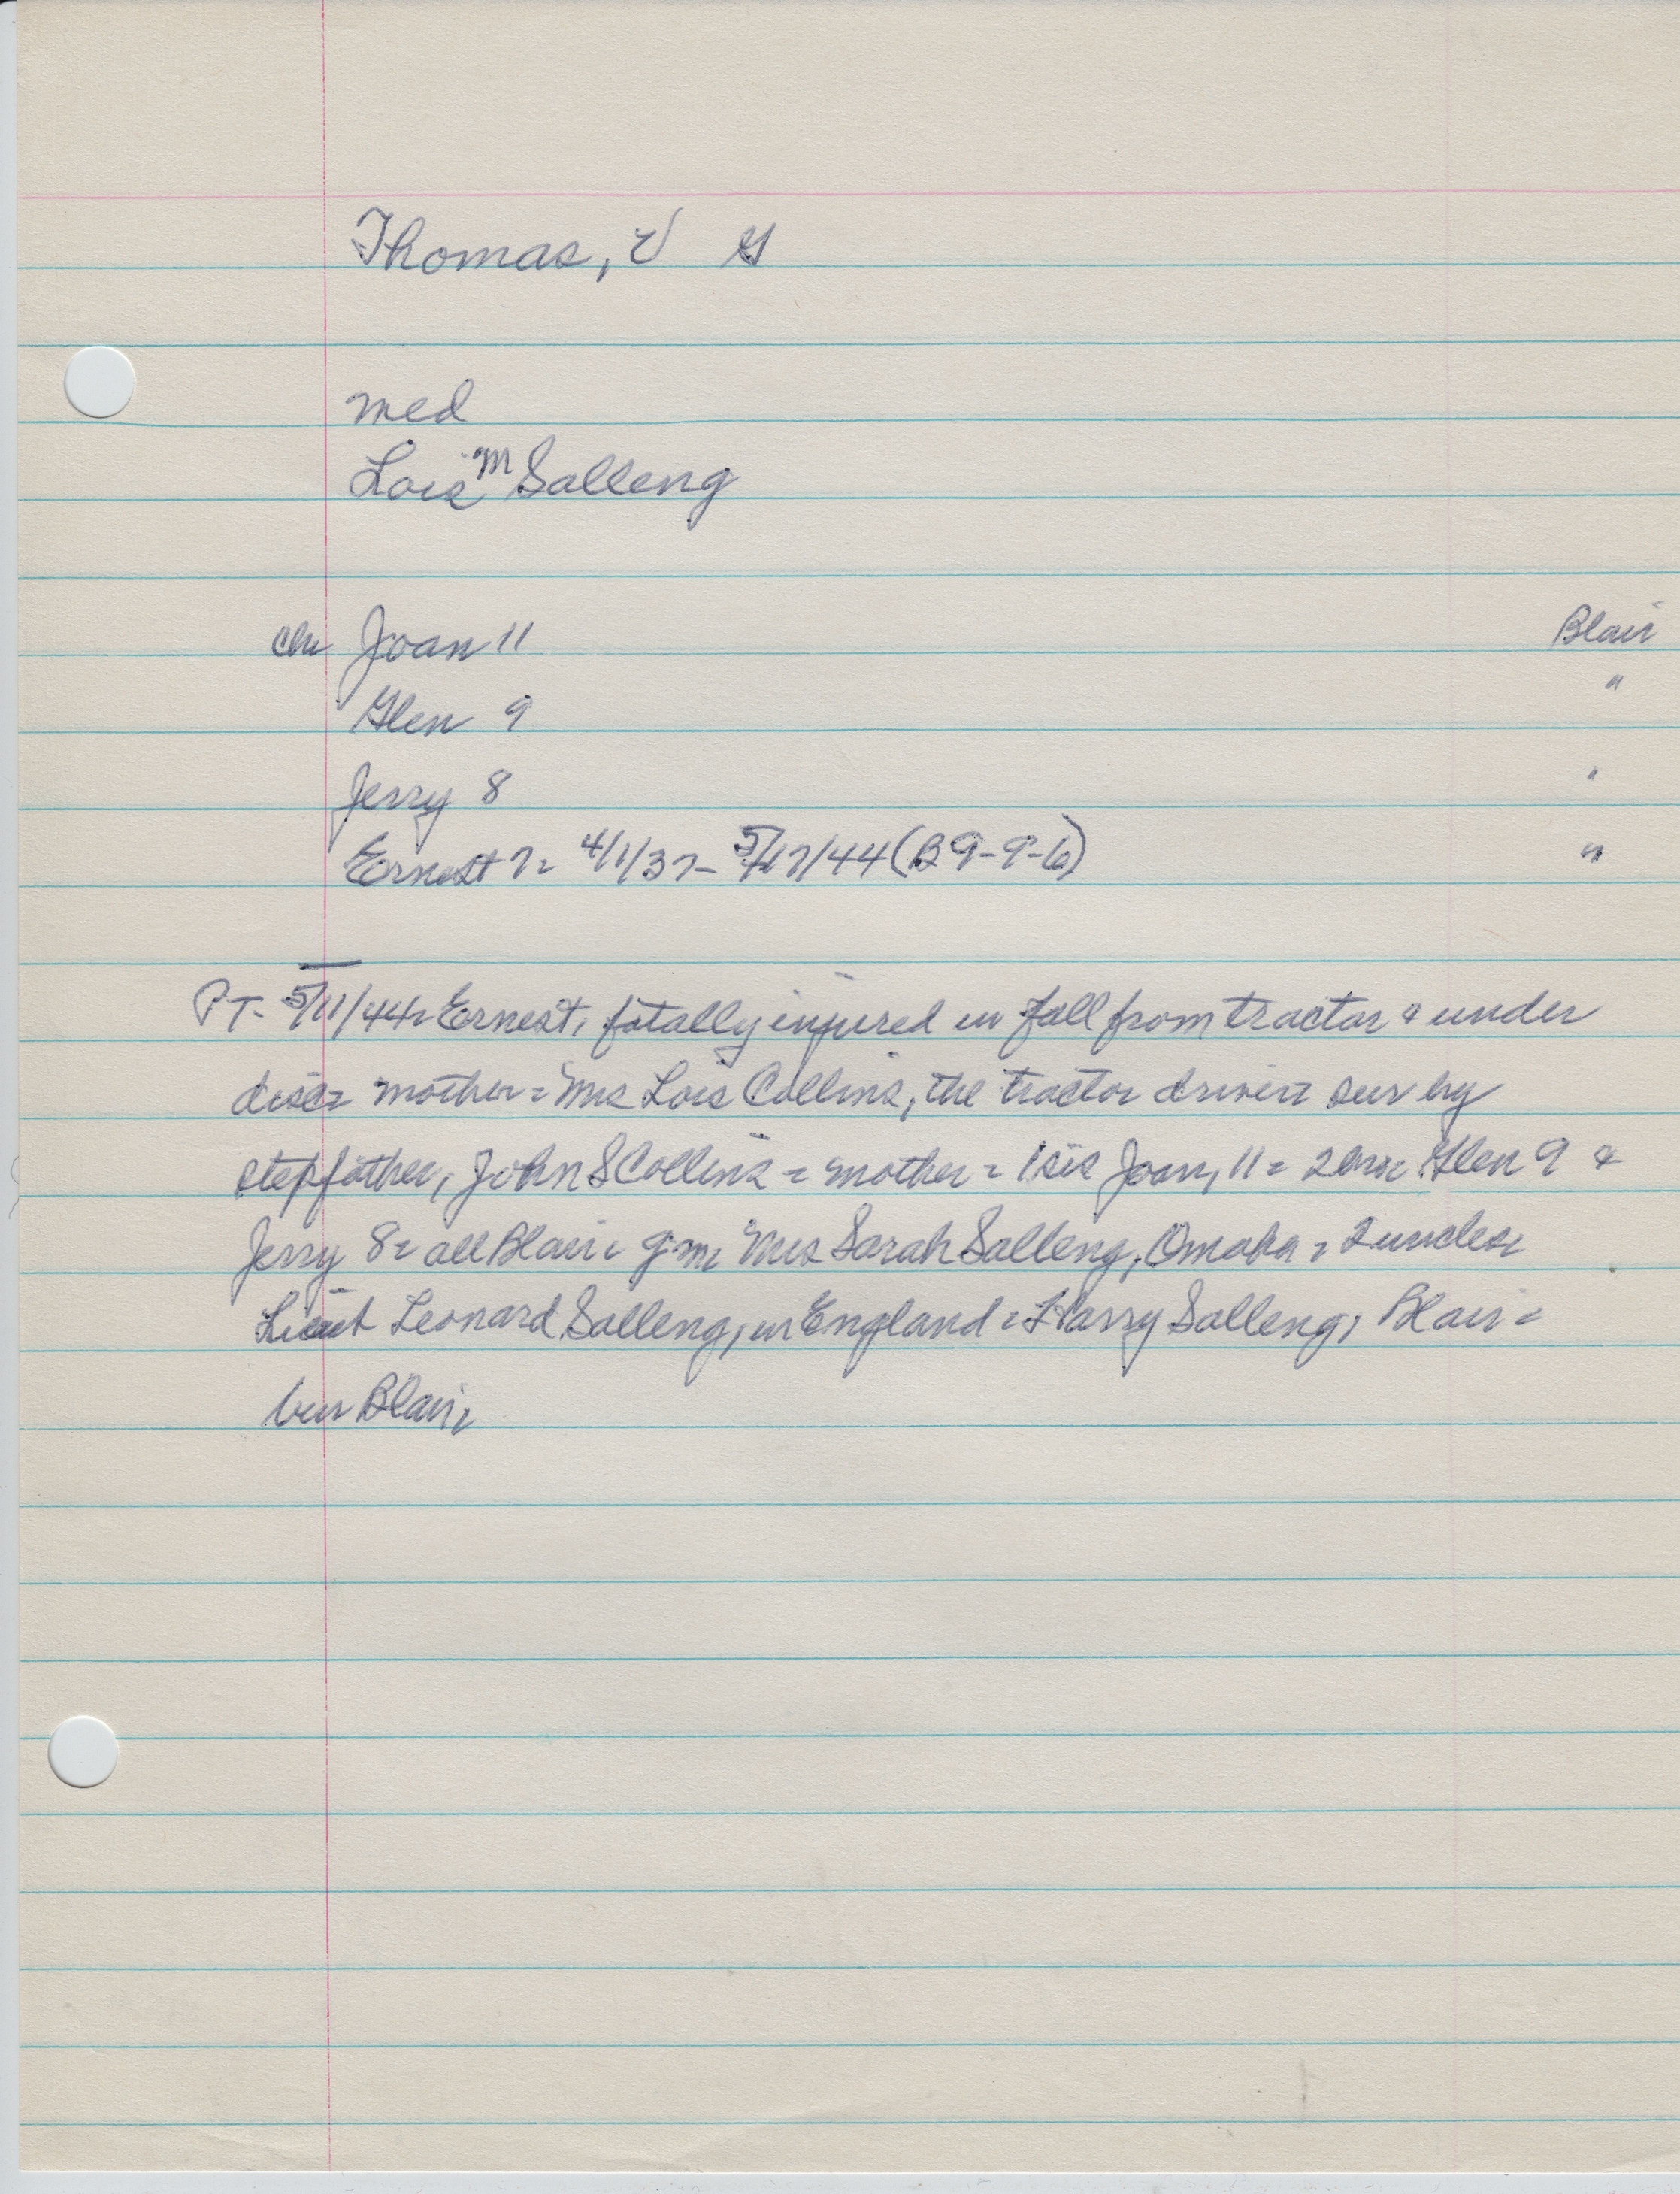 Thomas, V G
med
Lois M Salleng
chr Joan 11 Blair
Glen 9 "
Jerry 8 "
Ernest 7= 4/1/37- 5/17/44 (B 9-9-6) "
PT- 5/11/44= Ernest, fatally injured in fall from tractor & under
disc= mother= Mrs Lois Collins, the tractor driver= sur by
stepfather, John S Collins = mother = 1 sis Joan, 11 = 2 bros= Glen 9 &
Jerry 8= all Blair= gm= Mrs Sarah Salleng, Omaha = 2 uncles=
Lieut Leonard Salleng, in England = Harry Salleng, Blair =
bur Blair=